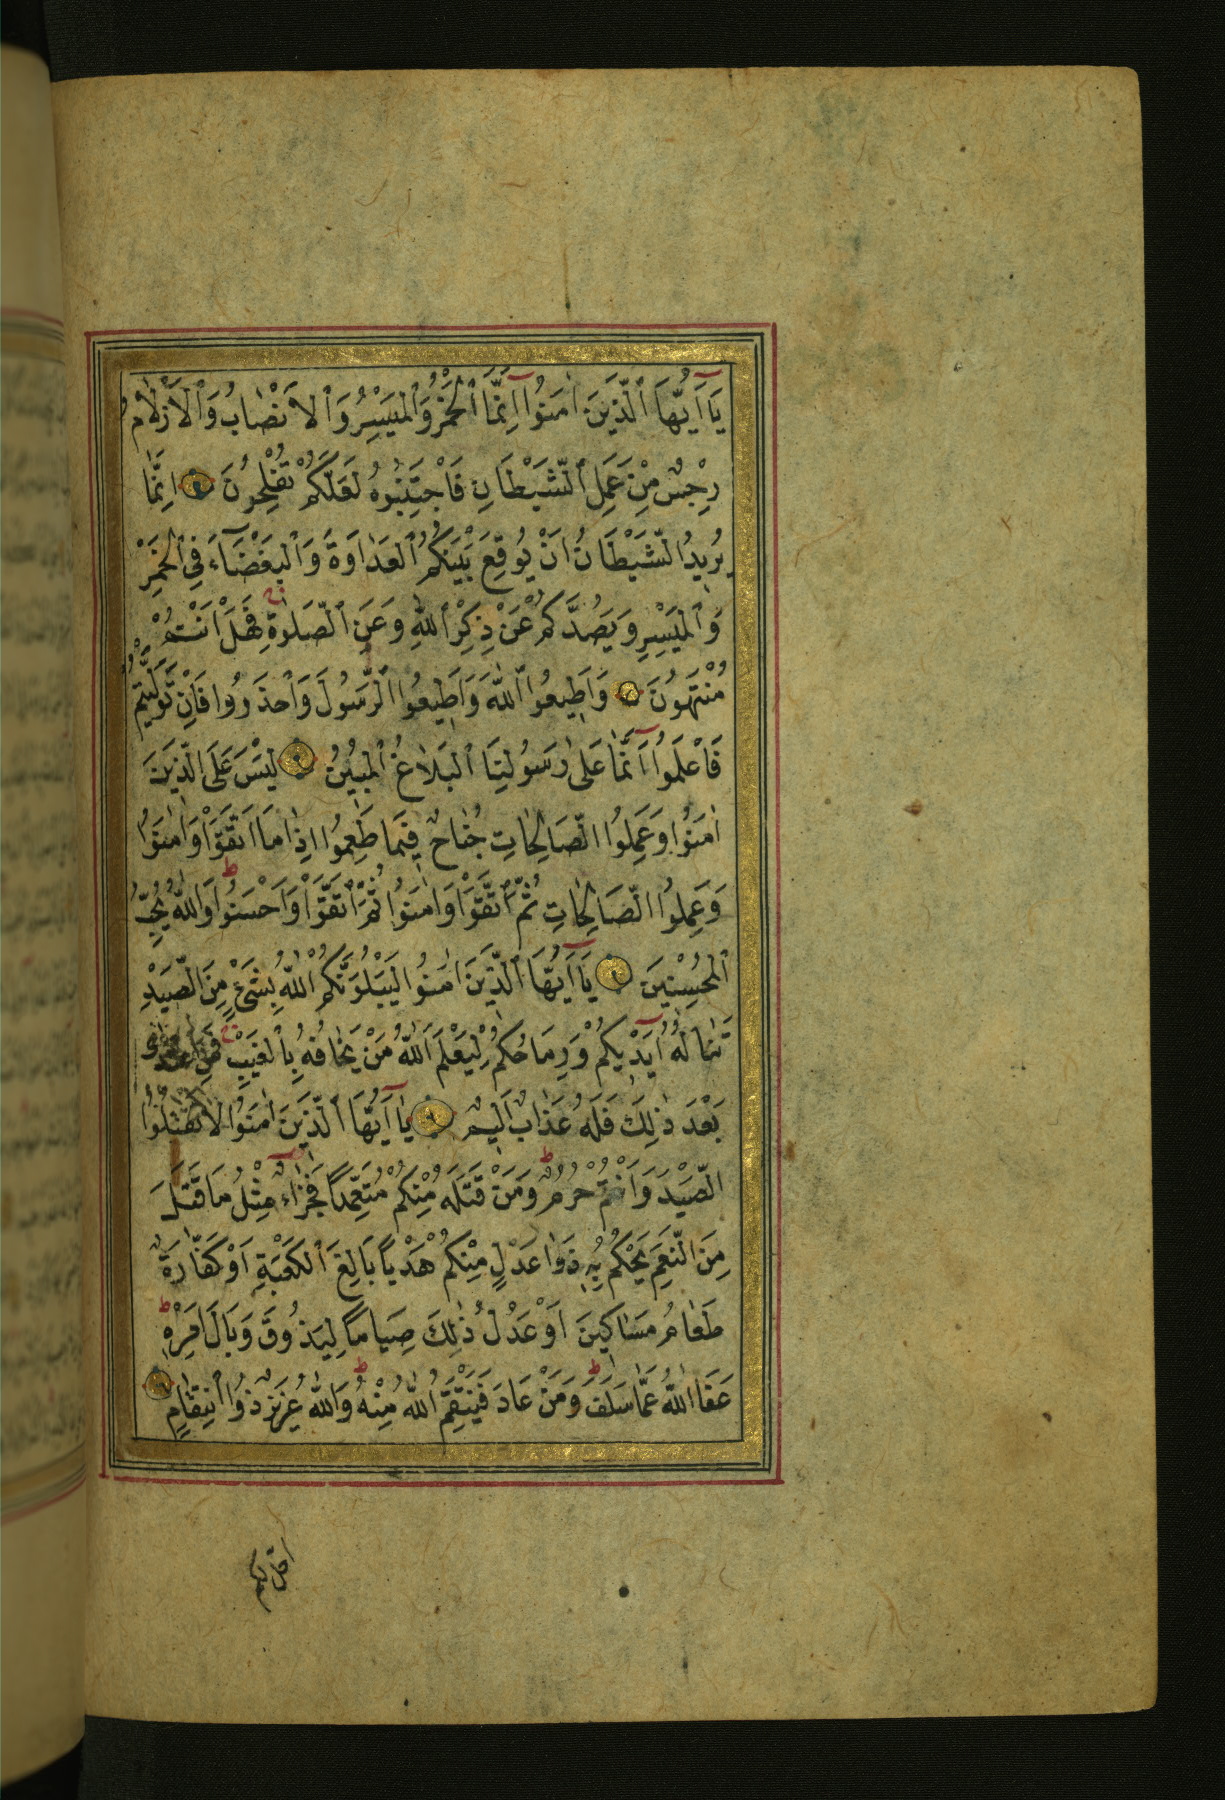 يَآ اَيُّهَا الَّذِينَ اٰمَنُوا اِنَّمَا الْخَمْرُ وَالْمَيْسِرُ وَالْاَنْصَابُ وَالْاَزْلَامُ
رِجْسٌ مِنْ عَمَلِ الشَّيْطَانِ فَاجْتَنِبُوهُ لَعَلَّكُمْ تُفْلِحُونَ اِنَّمَا
يُرِيدُ الشَّيْطَانُ اَنْ يُوقِعَ بَيْنَكُمُ الْعَدَاوَةَ وَالْبَغْضَآءَ فِي الْخَمْرِ
وَالْمَيْسِرِ وَيَصُدَّكُمْ عَنْ ذِكْرِ اللّٰهِ وَعَنِ الصَّلٰوةِ فَهَلْ اَنْتُمْ
مُنْتَهُونَ وَاَطِيعُوا اللّٰهَ وَاَطِيعُوا الرَّسُولَ وَاحْذَرُوا فَاِنْ تَوَلَّيْتُمْ
فَاعْلَمُوا اَنَّمَا عَلٰى رَسُولِنَا الْبَلَاغُ الْمُبِينُ لَيْسَ عَلَى الَّذِينَ
اٰمَنُوا وَعَمِلُوا الصَّالِحَاتِ جُنَاحٌ فِيمَا طَعِمُوا اِذَا مَا اتَّقَوْا وَاٰمَنُوا
وَعَمِلُوا الصَّالِحَاتِ ثُمَّ اتَّقَوْا وَاٰمَنُوا ثُمَّ اتَّقَوْا وَاَحْسَنُوا وَاللّٰهُ يُحِبُّ
الْمُحْسِنِينَ يَآ اَيُّهَا الَّذِينَ اٰمَنُوا لَيَبْلُوَنَّكُمُ اللّٰهُ بِشَيْءٍ مِنَ الصَّيْدِ
تَنَالُهُ اَيْدِيكُمْ وَرِمَاحُكُمْ لِيَعْلَمَ اللّٰهُ مَنْ يَخَافُهُ بِالْغَيْبِ فَمَنِ
بَعْدَ ذٰلِكَ فَلَهُ عَذَابٌ اَلِيمٌ يَآ اَيُّهَا الَّذِينَ اٰمَنُوا لَا تَقْتُلُوا
الصَّيْدَ وَاَنْتُمْ حُرُمٌ وَمَنْ قَتَلَهُ مِنْكُمْ مُتَعَمِّدًا فَجَزَآءٌ مِثْلُ مَا قَتَلَ
مِنَ النَّعَمِ يَحْكُمُ بِهِ ذَوَا عَدْلٍ مِنْكُمْ هَدْيًا بَالِغَ الْكَعْبَةِ اَوْ كَفَّارَةٌ
طَعَامُ مَسَاكِينَ اَوْ عَدْلُ ذٰلِكَ صِيَامًا لِيَذُوقَ وَبَالَ اَمْرِهِ
عَفَا اللّٰهُ عَمَّا سَلَفَ وَمَنْ عَادَ فَيَنْتَقِمُ اللّٰهُ مِنْهُ وَاللّٰهُ عَزِيزٌ ذُو انْتِقَامٍ
احل لكم